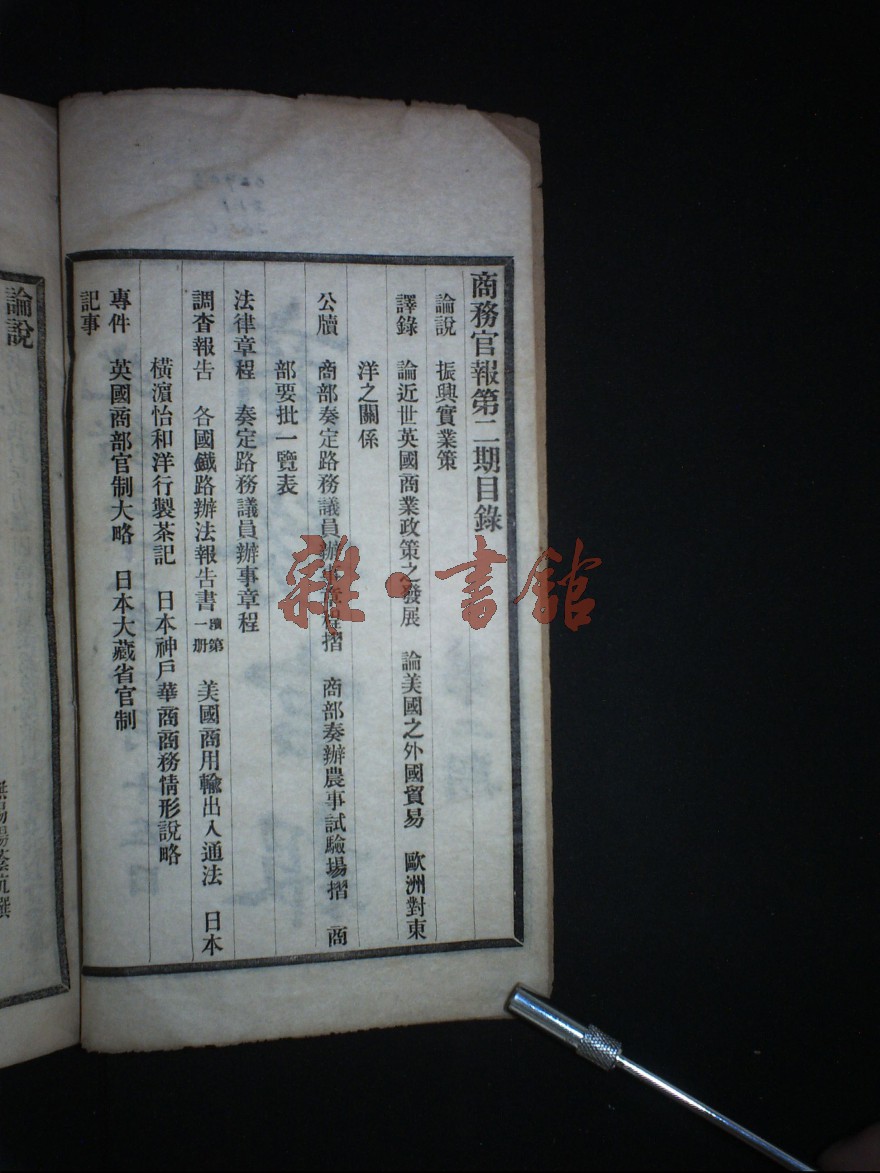 商務官報第二期目錄
論說　振興實業策
譯錄　論近世英國商業政策之發展　論美國之外國貿易　歐洲對東
洋之關係
公牘　商部奏定路務議員辦事章程摺　商部奏辦農事試驗場摺　商
部要批一覽表
法律章程　奏定路務議員辦事章程
調查報告　各國鐵路辦法報告書續第一册　美國商用輸出入通法　日本
橫濵怡和洋行製茶記　日本神戶華商商務情形說略
專件　英國商部官制大略　日本大藏省官制
記事
論說
楊蔭杭撰
雜·書館